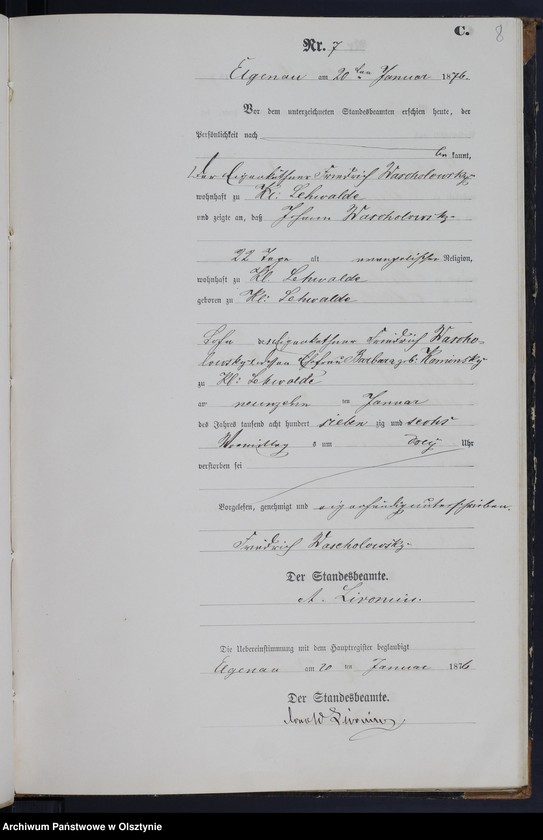 C.
8
Nr. 7
Elgenau am 20 ten Januar 1876.
Vor dem unterzeichneten Standesbeamten erschien heute, der
Persönlichkeit nach
be kannt,
der Eigenkäthner Friedrich Wascholowsky
wohnhaft zu Kl: Lehwalde
und zeigte an, daß Johann Wascholowsky
22 Tage alt evangelischer Religion,
wohnhaft zu Kl. Lehwalde
geboren zu Kl: Lehwalde
Sohn des Eigenkäthner Friedrich Wascho-
lowsky und dessen Ehefrau Barbara geb: Kaminsky
zu Kl: Lehwalde
am neunzehn ten Januar
des Jahres tausend acht hundert sieben zig und sechs
Vormittag s um drey Uhr
verstorben sei
Vorgelesen, genehmigt und eigenhändig unterschrieben.
Friedrich Wascholowsky
Der Standesbeamte.
A. Livonius.
Die Uebereinstimmung mit dem Hauptregister beglaubigt
Elgenau am 20 ten Januar 1876
Der Standesbeamte.
Arnold Livonius
Archiwum Państwowe w Olsztynie